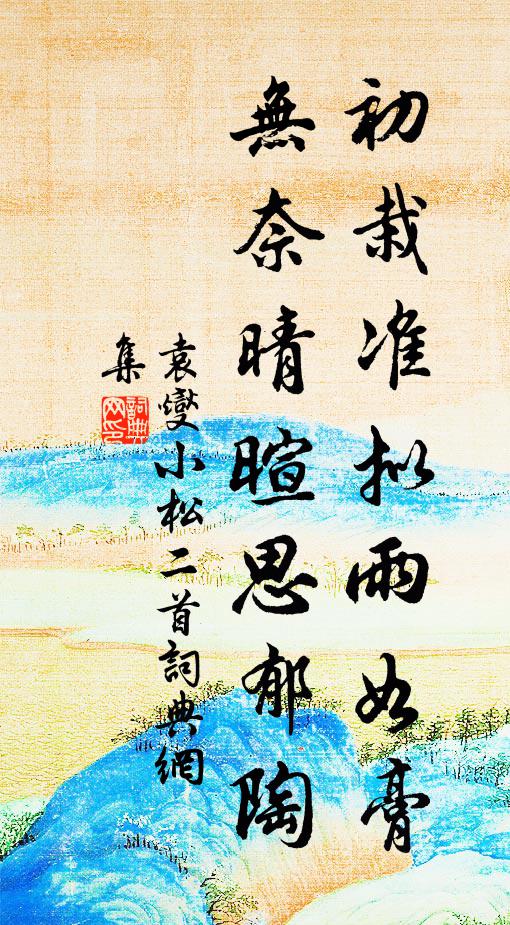 初栽准拟雨如膏
無奈晴暄思郁陶
袁燮小松二首詞典網
集
詞典網印